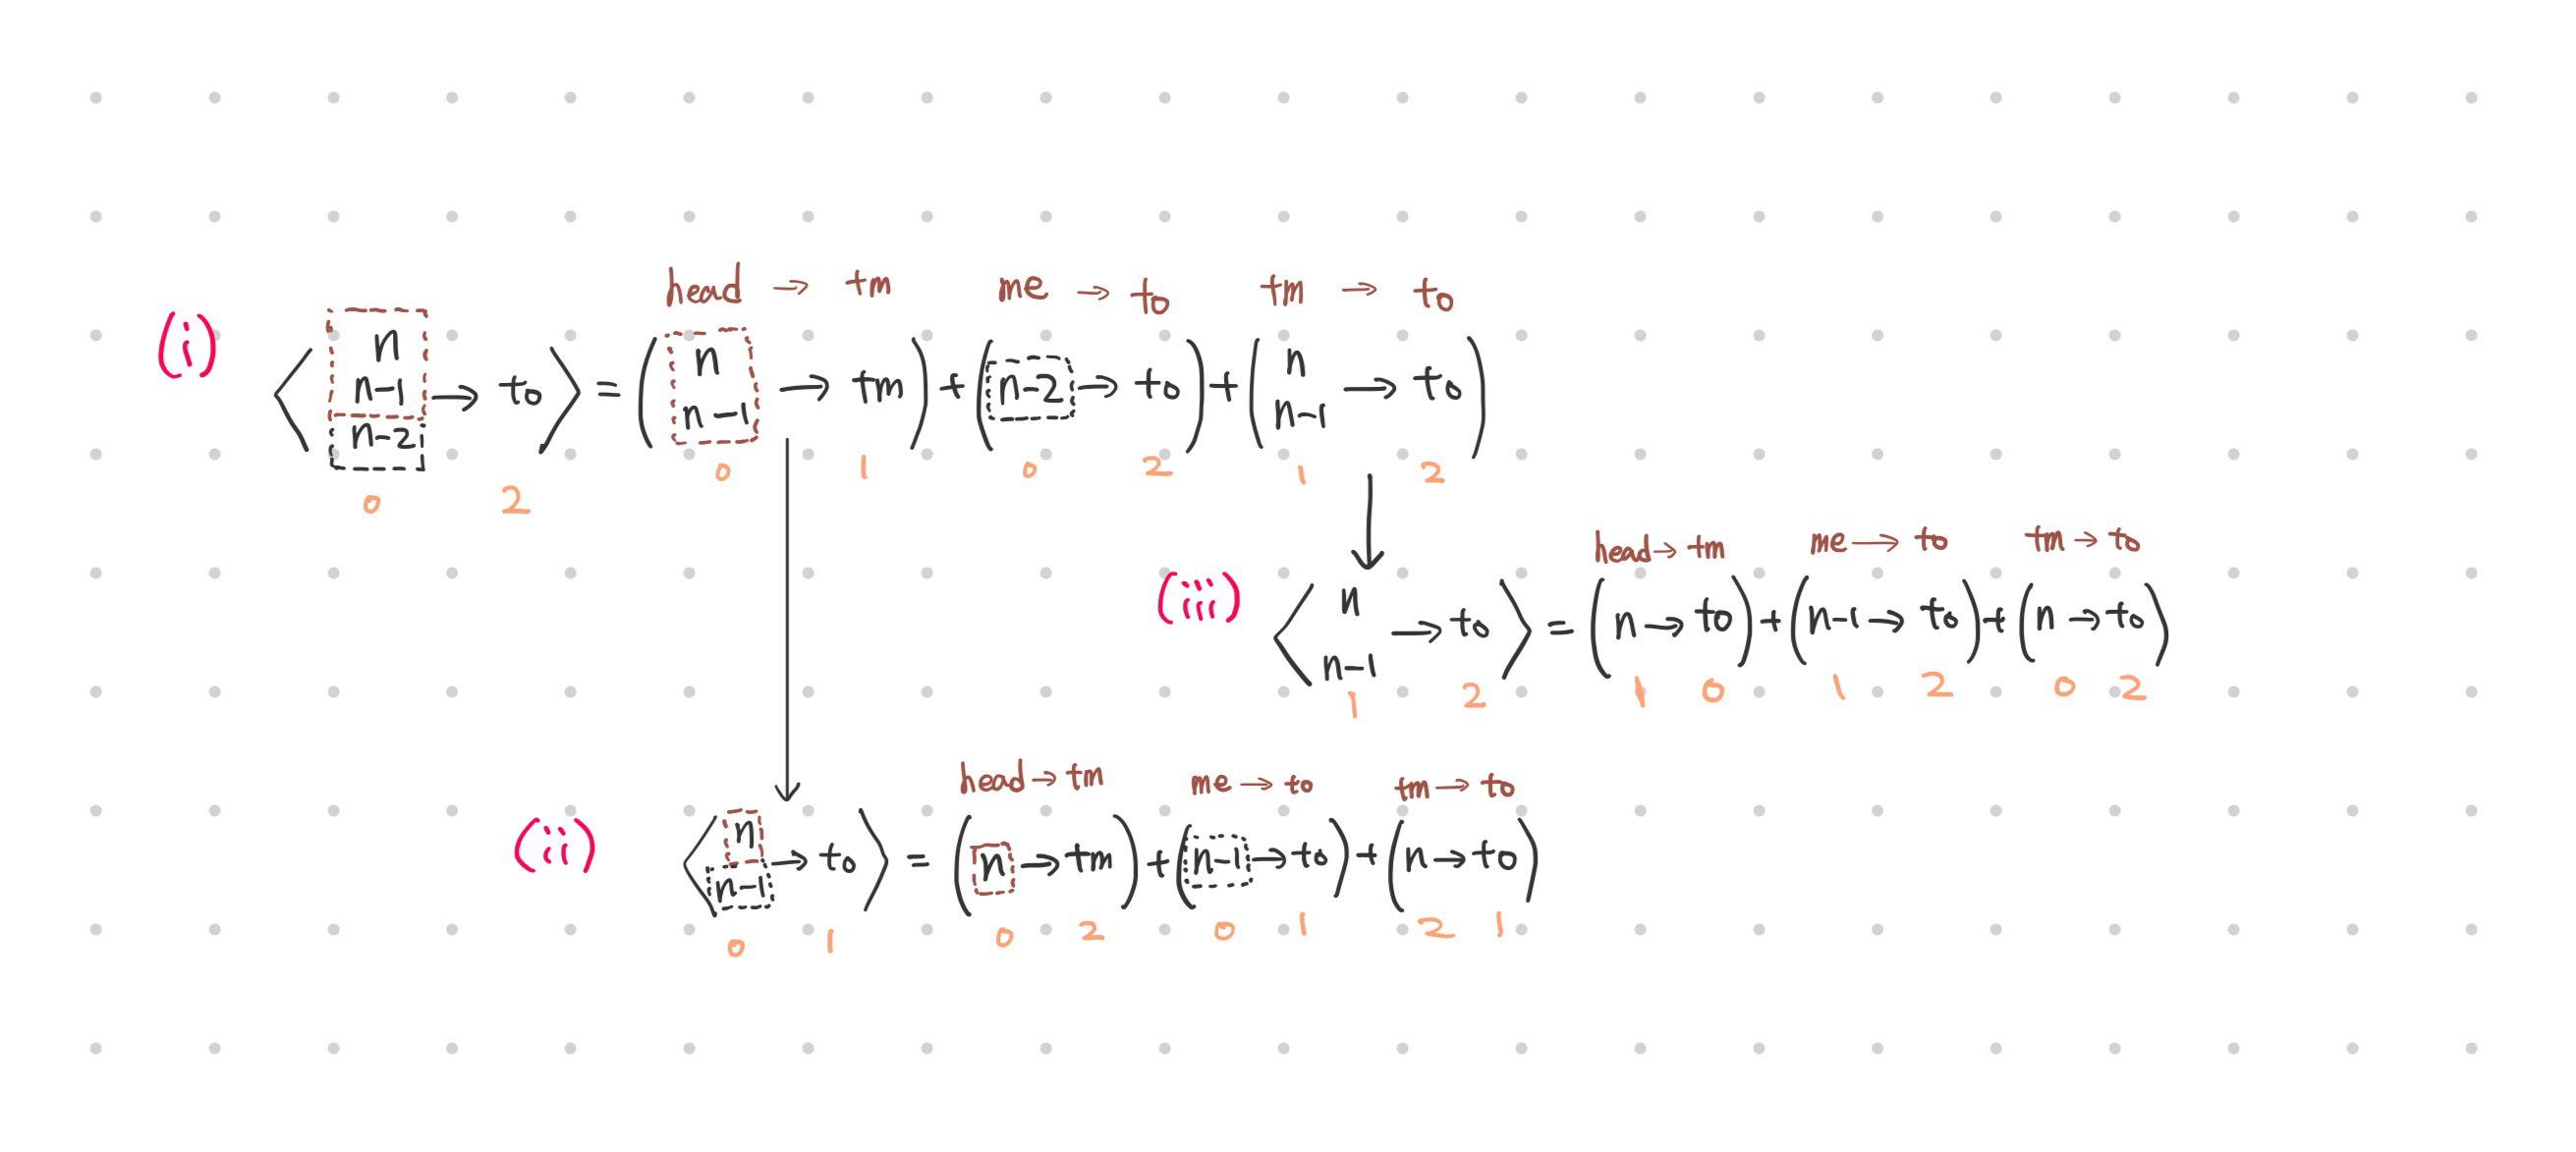 head → tm me → to tm → to
(i) ⟨ n n-1 n-2 → to ⟩ = ( n n-1 → tm ) + ( n-2 → to ) + ( n n-1 → to )
0 2 0 1 0 2 1 2
head → tm me → to tm → to
(iii) ⟨ n n-1 → to ⟩ = ( n → to ) + ( n-1 → to ) + ( n → to )
1 2 1 0 1 2 0 2
head → tm me → to tm → to
(ii) ⟨ n n-1 → to ⟩ = ( n → tm ) + ( n-1 → to ) + ( n → to )
0 1 0 2 0 1 2 1